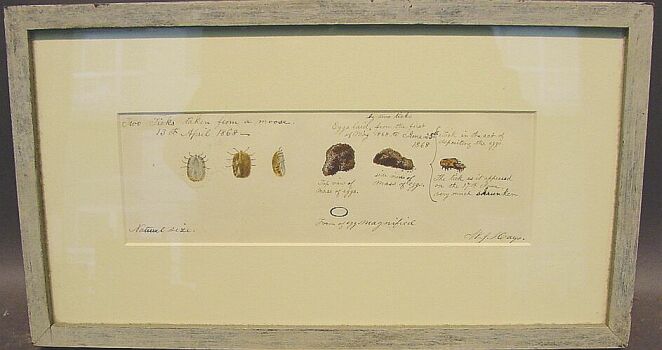 Two Ticks taken from a moose.
13th April 1868 —
by two ticks
Eggs laid, from the first
of May 1868 to June 25th
1868
Tick in the act of
depositing the eggs
Top view of
mass of eggs.
side view of
mass of eggs.
The tick as it appeared
on the 17th June
very much shrunken
Form of egg magnified
Natural size.
W. J. Hays.